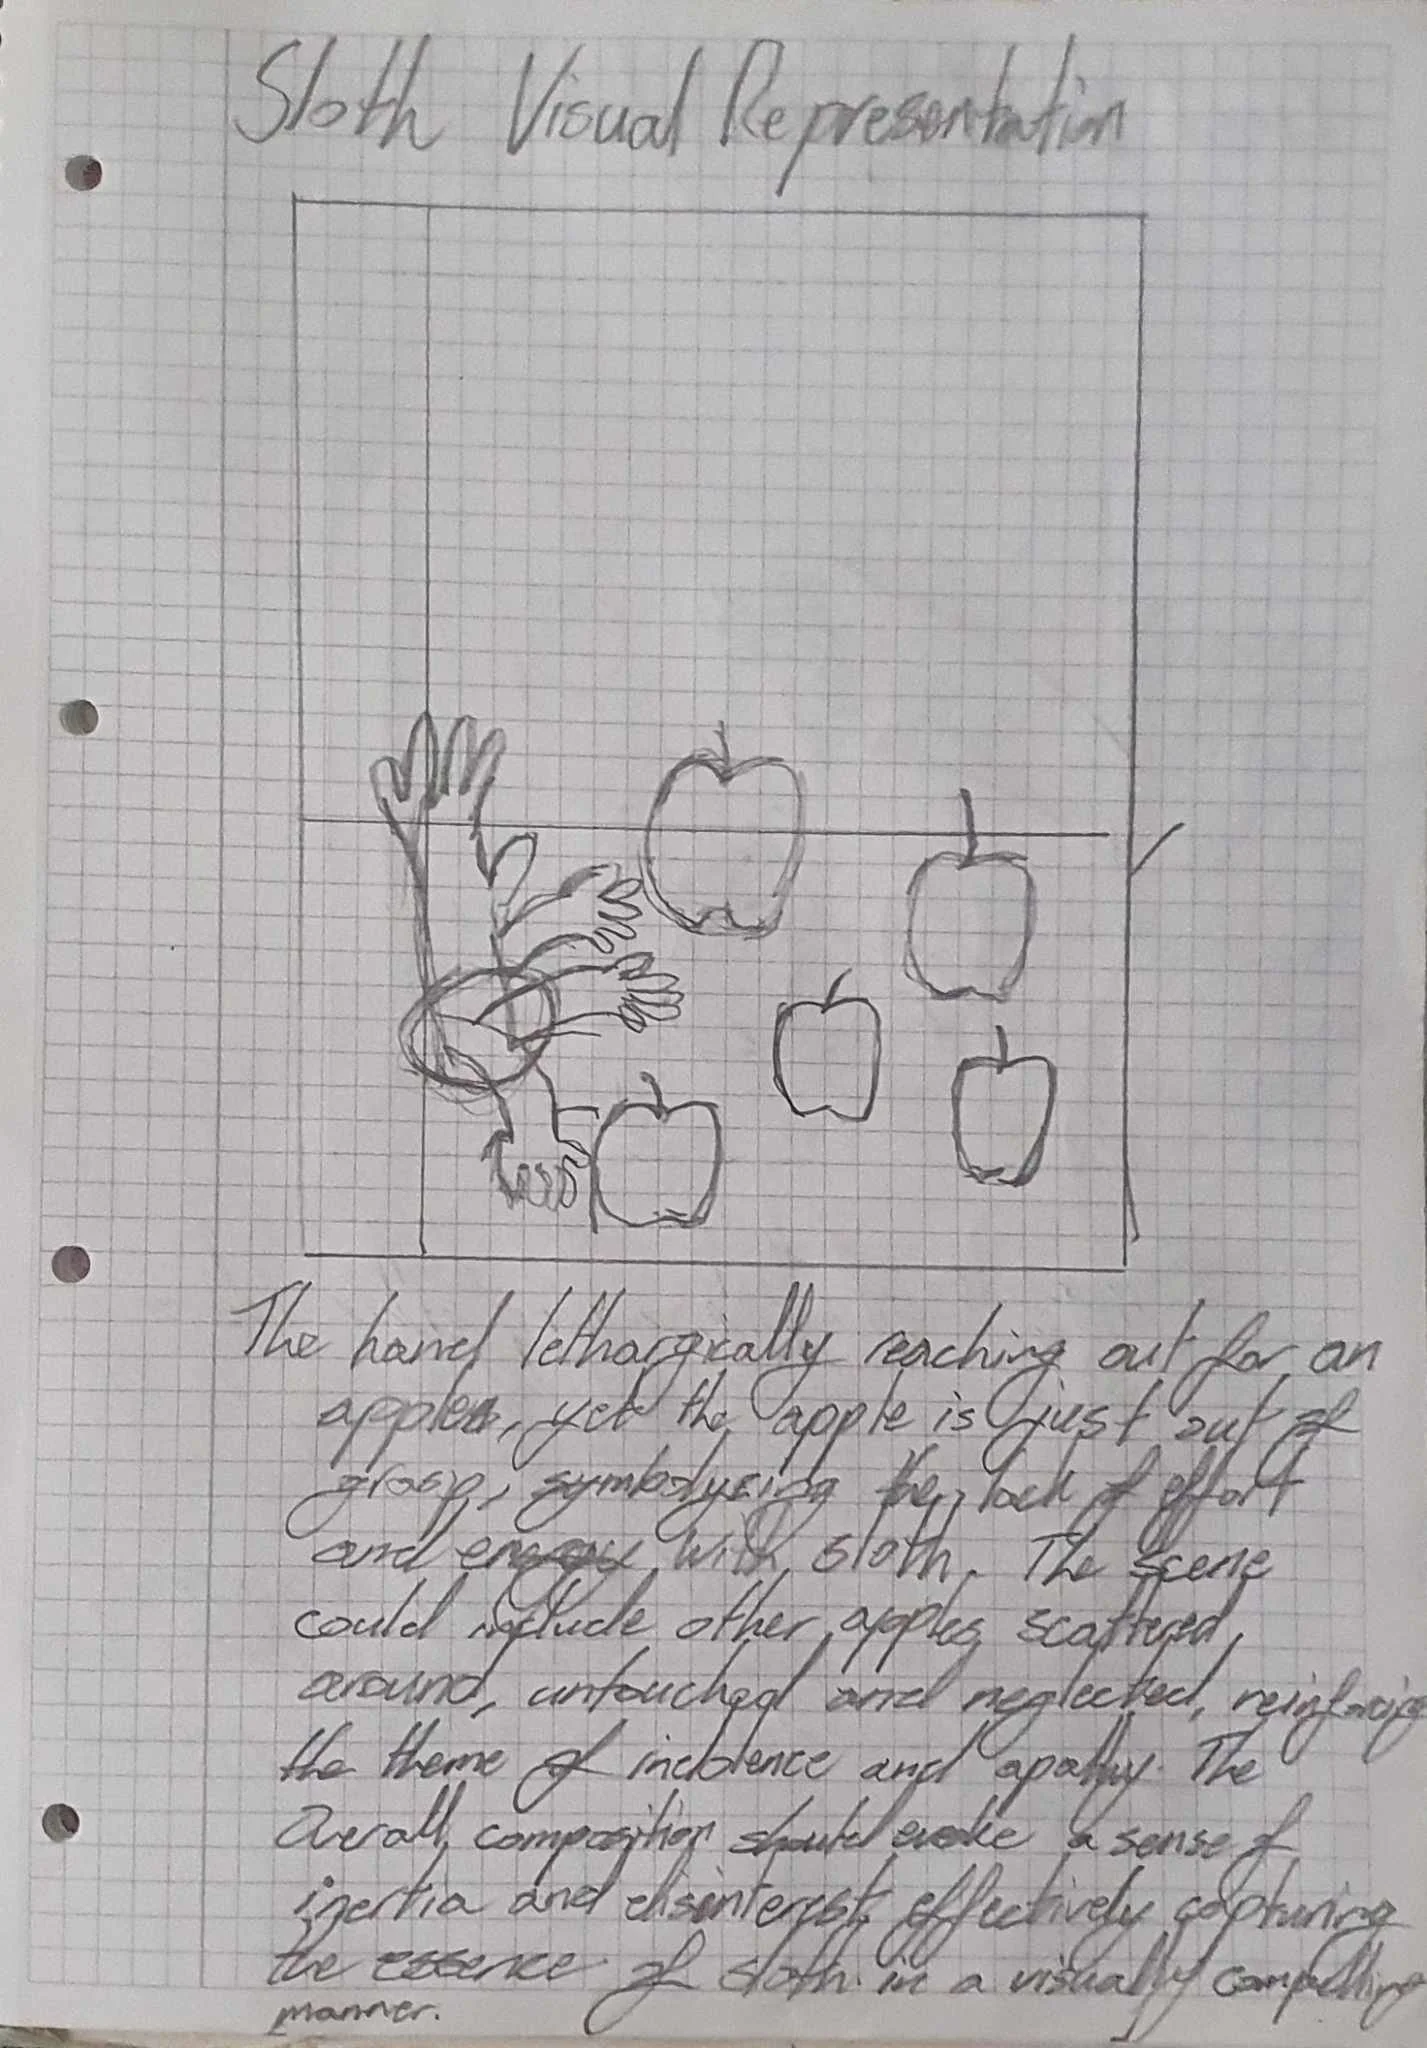 Sloth Visual Representation
The hand lethargically reaching out for an
apple, yet the apple is just out of
grasp, symbolysing the lack of effort
and energy with sloth. The scene
could include other apples scattered
around, untouched and neglected, reinforcing
the theme of indolence and apathy. The
Overall composition should evoke a sense of
inertia and disinterest, effectively capturing
the essence of sloth in a visually compelling
manner.